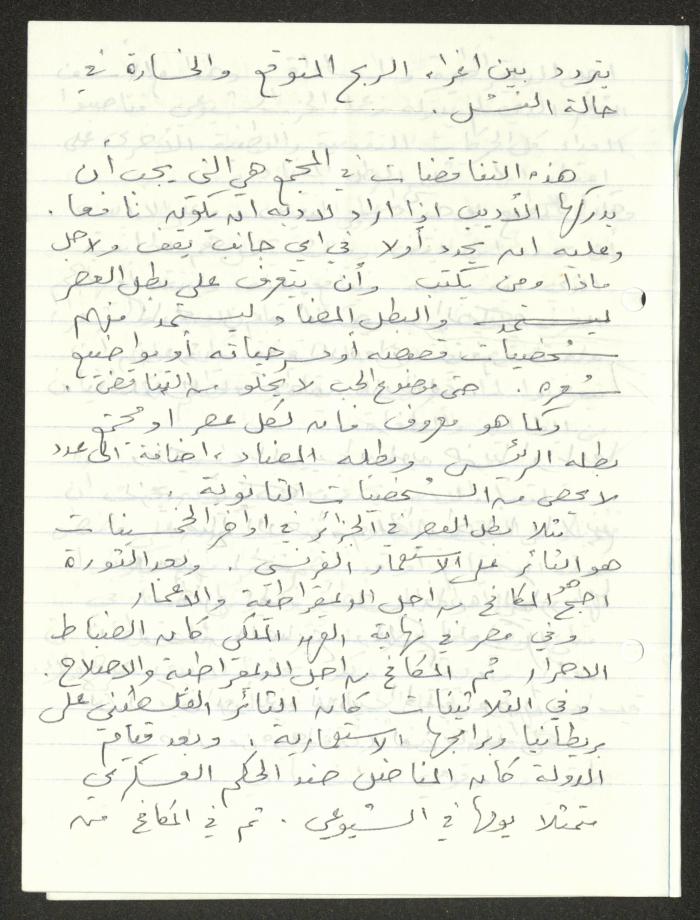 يتردد بين اغراء الربح المتوقع والخسارة في
حالة الفشل.
هذه التناقضات في المجتمع هي التي يجب أن
يدركها الأديب اذا اراد لادبه ان يكون نافعا.
وعليه ان يحدد أولا في اي جانب يقف ولاجل
ماذا ومن يكتب وأن يتعرف على بطل العصر
ليستمد والبطل المضاد ليستمد منهم
شخصيات قصصه أو مسرحياته أو مواضيع
شعره. حتى موضوع الحب لا يخلو من التناقض.
وكما هو معروف فان لكل عصر او مجتمع
بطله الرئيسي وبطله المضاد، اضافة الى عدد
لا يحصى من الشخصيات الثانوية.
مثلا بطل العصر في الجزائر في اواخر الخمسينات
هو الثائر على الاستعمار الفرنسي. وبعد الثورة
اصبح المكافح من اجل الدمقراطية والاعمار
وفي مصر في نهاية العهد الملكي كان الضباط
الاحرار ثم المكافح من اجل الدمقراطية والاصلاح.
وفي الثلاثينات كان الثائر الفلسطيني على
بريطانيا وبرامجها الاستعمارية، وبعد قيام
الدولة كان المناضل ضد الحكم العسكري
متمثلا يومها في الشيوعي. ثم في المكافح من